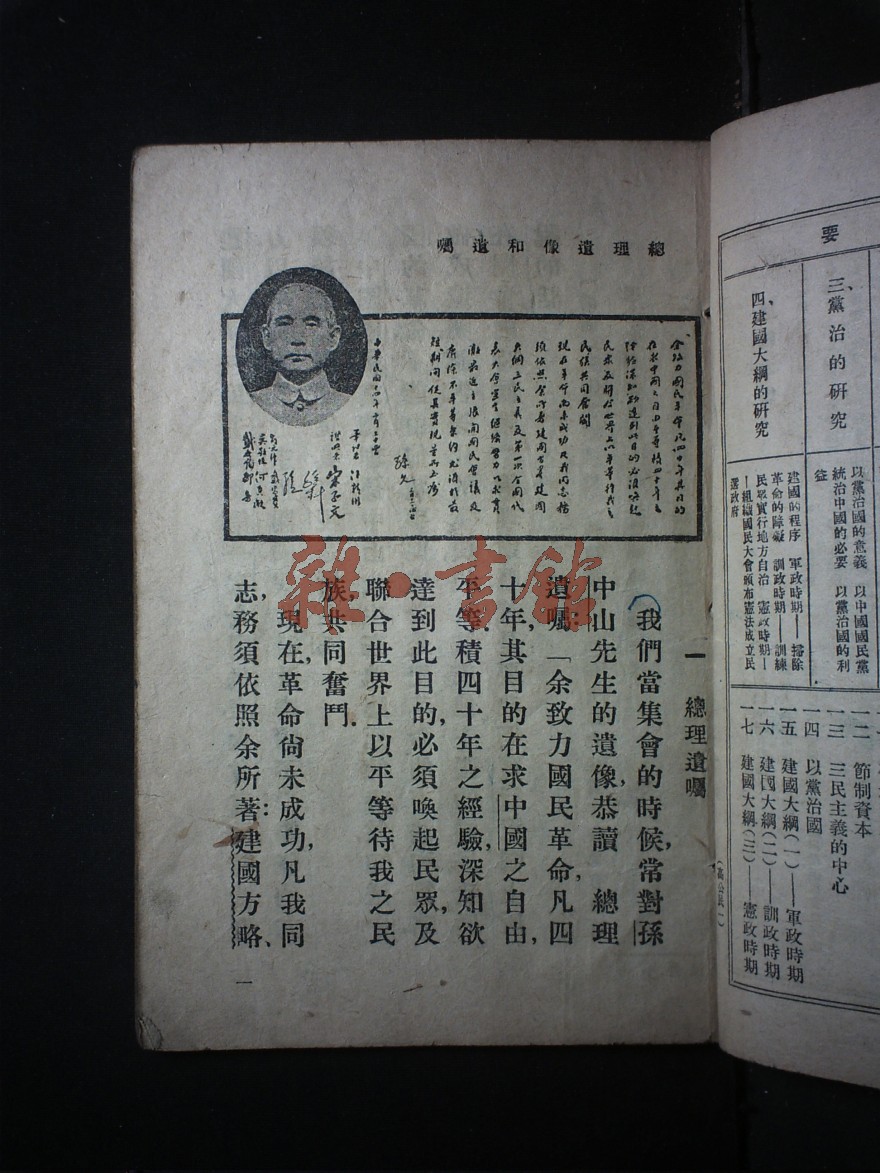 要
三、黨治的研究
四、建國大綱的研究
以黨治國的意義　以中國國民黨
統治中國的必要　以黨治國的利
益
建國的程序　軍政時期——掃除
革命的障礙　訓政時期——訓練
民眾實行地方自治　憲政時期—
—組織國民大會頒布憲法成立民
選政府
一二　節制資本
一三　三民主義的中心
一四　以黨治國
一五　建國大綱(一)——軍政時期
一六　建國大綱(二)——訓政時期
一七　建國大綱(三)——憲政時期
(高公民一)
總理遺像和遺囑
余致力國民革命凡四十年其目的
在求中國之自由平等積四十年之
經驗深知欲達到此目的必須喚起
民眾及聯合世界上以平等待我之
民族共同奮鬥
現在革命尚未成功凡我同志務
須依照余所著建國方略建國
大綱三民主義及第一次全國代
表大會宣言繼續努力以求貫
徹最近主張開國民會議及
廢除不平等條約尤須於最
短期間促其實現是所至囑
孫文
宋子文
一　總理遺囑
我們當集會的時候,常對孫
中山先生的遺像,恭讀　總理
遺囑:「余致力國民革命,凡四
十年,其目的在求中國之自由,
平等.積四十年之經驗,深知欲
達到此目的,必須喚起民眾,及
聯合世界上以平等待我之民
族,共同奮鬥.
現在,革命尚未成功,凡我同
志,務須依照余所著:建國方略、
一
雜·書館